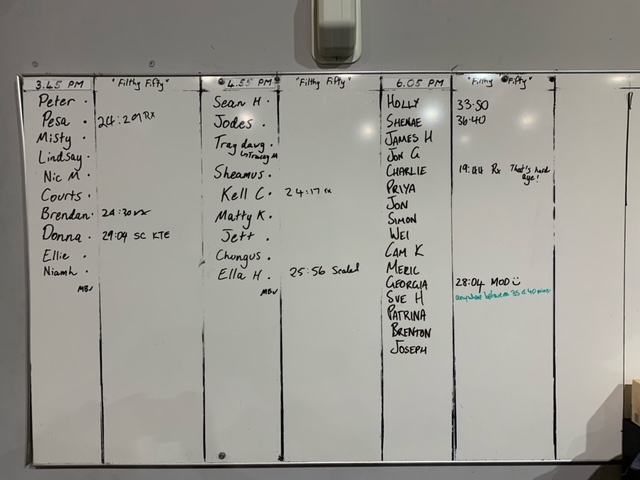 3.45 PM "Filthy Fifty"
Peter .
Pesa . 24:20 Rx
Misty .
Lindsay .
Nic M .
Courts .
Brendan . 24:30 Rx
Donna . 29:04 SC KTE
Ellie .
Niamh .
MBV
4.55 PM "Filthy Fifty"
Sean H .
Jodes .
Tray dawg .
↳ Tracey M
Sheamus .
Kell C . 24:17 rx
Matty K .
Jett .
Chungus .
Ella H . 25:56 Scaled
MBV
6.05 PM "Filthy Fifty"
HOLLY 33:50
SHENAE 36:40
JAMES H
JON G
CHARLIE 19:44 Rx That's hard
aye!
PRIYA
JON
SIMON
WEI
CAM K
MERIC
GEORGIA 28:04 MOD
SUE H anywhere between 35 & 40 mins
PATRINA
BRENTON
JOSEPH